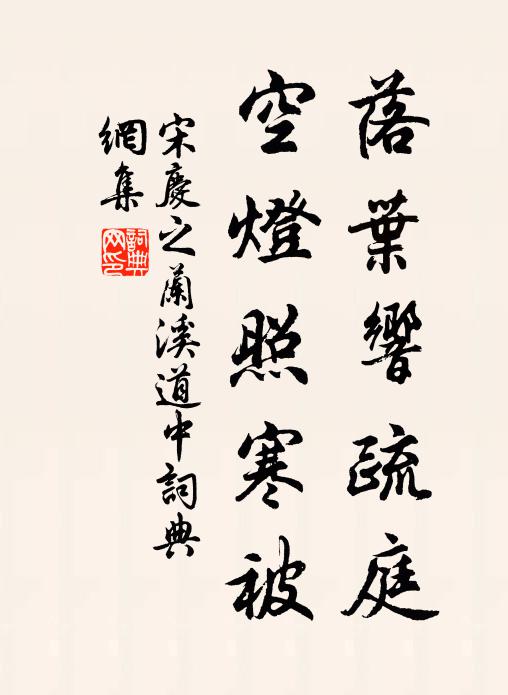 落葉響疏庭
空燈照寒被
宋慶之蘭溪道中詞典
網集
詞典
网印